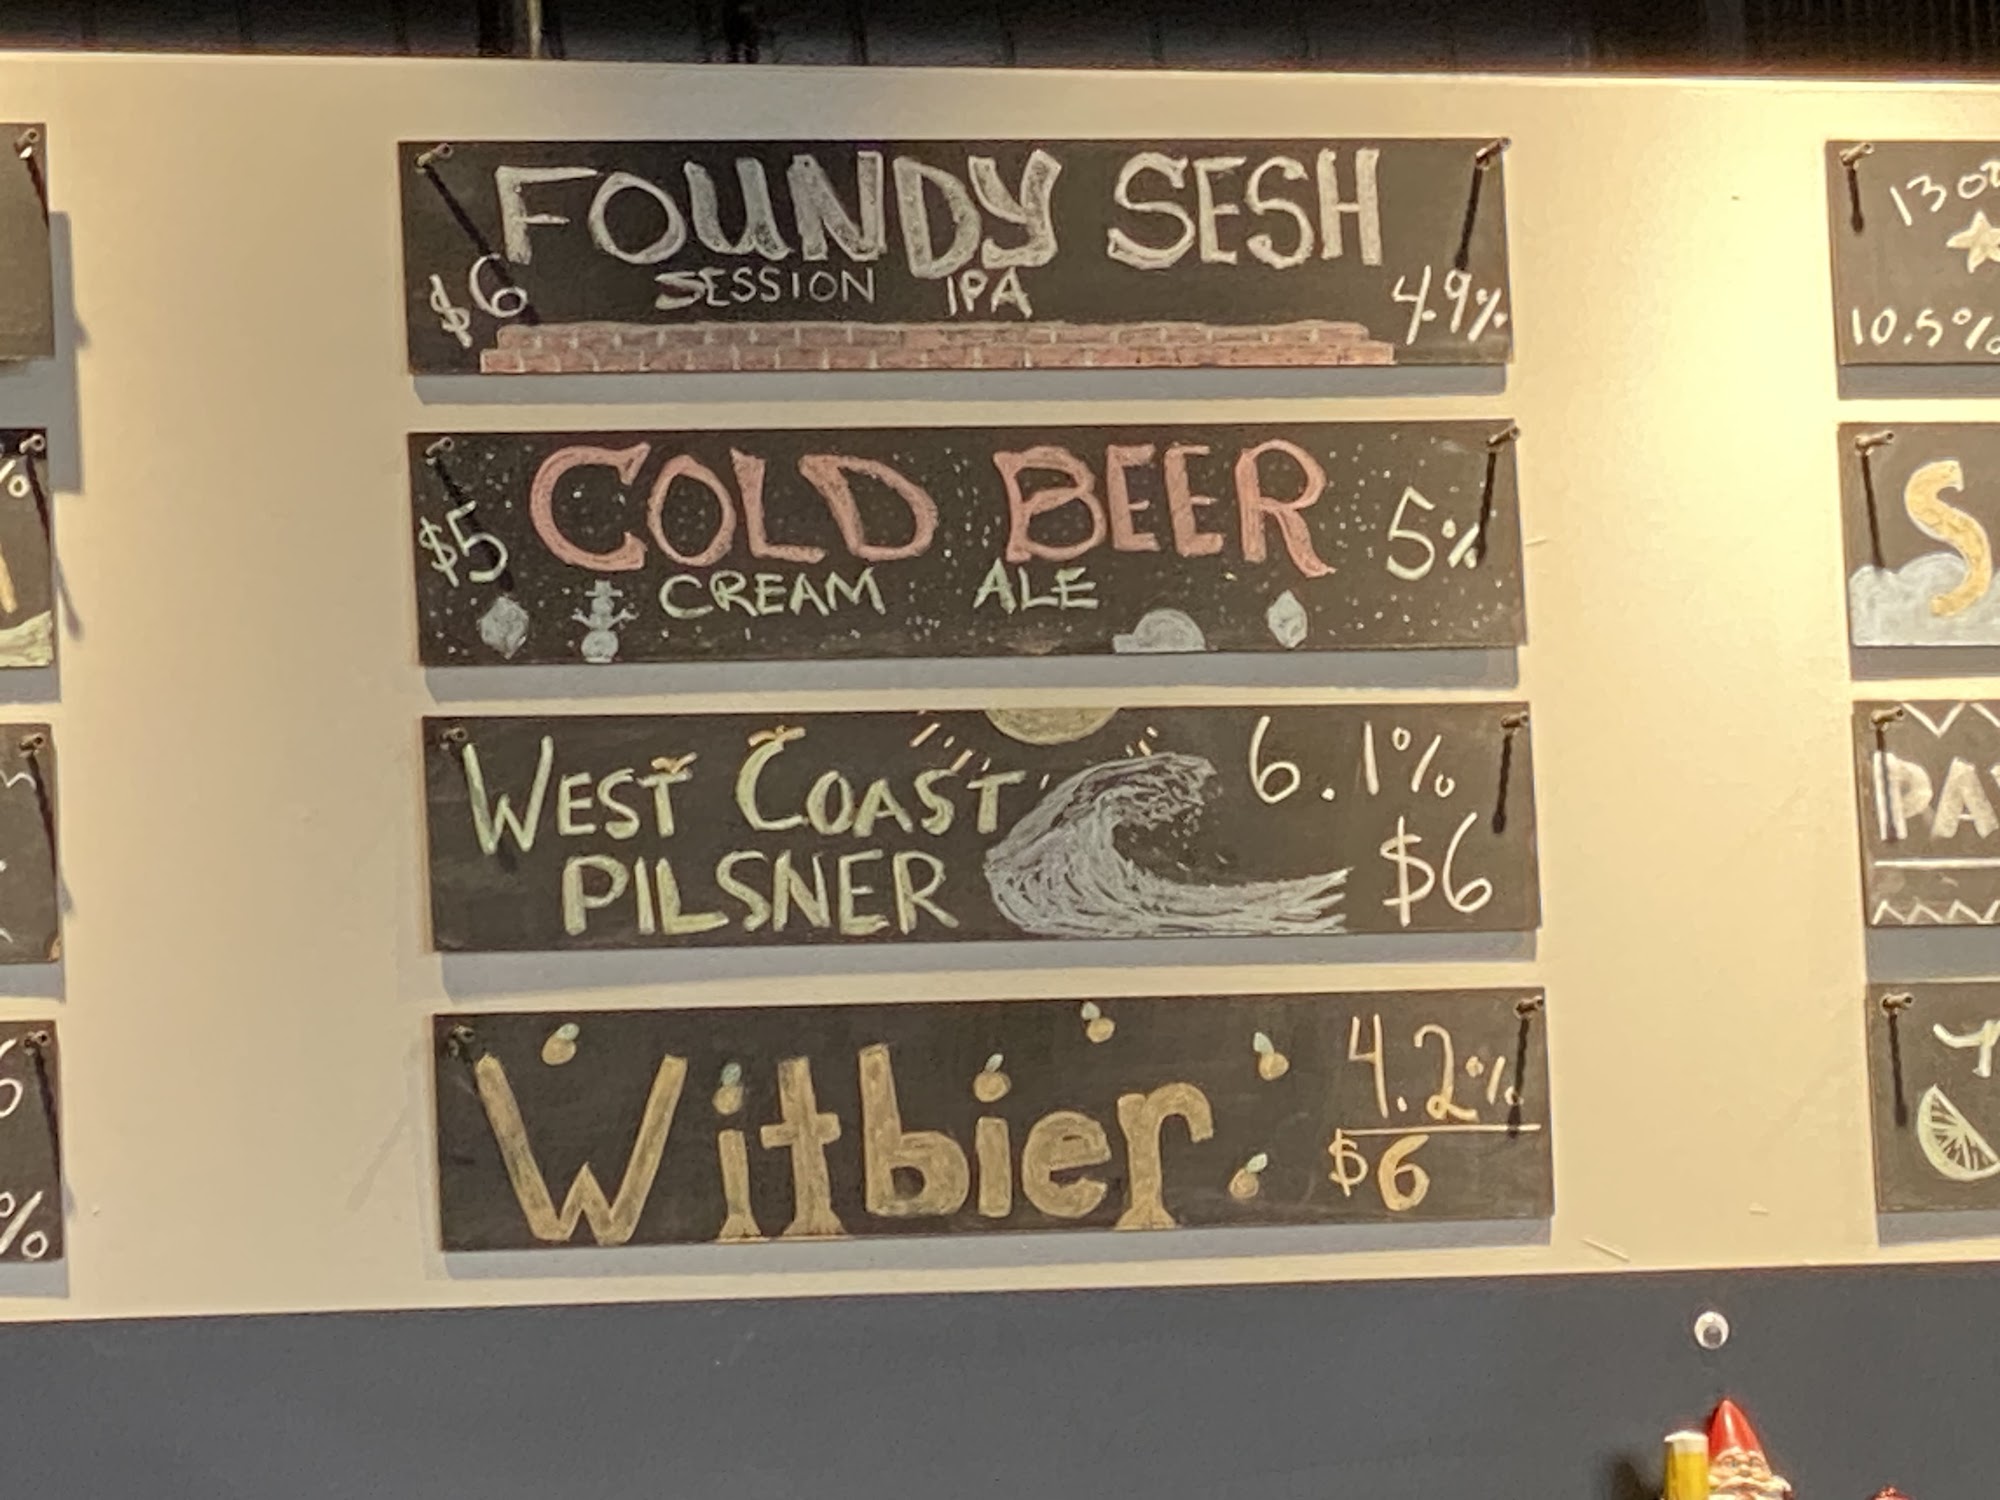 FOUNDY SESH
$6 SESSION IPA 4.9%
COLD BEER
$5 5%
CREAM ALE
WEST COAST 6.1%
PILSNER $6
Witbier 4.2%
$6
10.5%
S
%